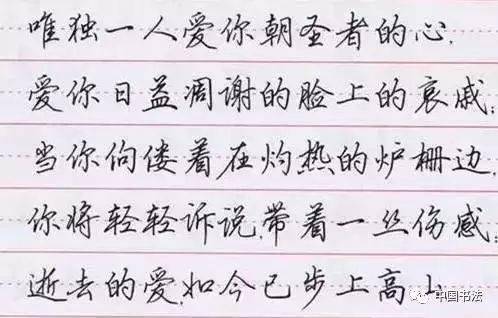 唯独一人爱你朝圣者的心.
爱你日益凋谢的脸上的衰戚.
当你佝偻着在灼热的炉栅边.
你将轻轻诉说.带着一丝伤感.
逝去的爱.如今已步上高山
中国书法